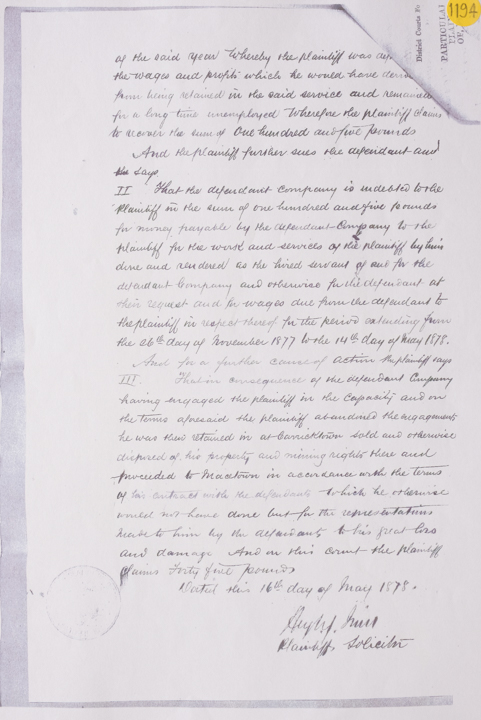 1194
District Courts Fo
PARTICULAR
OF
of the said year Whereby the plaintiff was
the wages and profits which he would have
from being retained in the said service and remained
for a long time unemployed Wherefore the plaintiff claims
to recover the sum of One hundred and five pounds
And the plaintiff further sues the defendant and
he says
II That the defendant Company is indebted to the
Plaintiff in the sum of one hundred and five pounds
for money payable by the defendant Company to the
plaintiff for the work and services of the plaintiff by him
done and rendered as the hired servant of and for the
defendant Company and otherwise for the defendant at
their request and for wages due from the defendant to
the plaintiff in respect thereof for the period extending from
the 26th day of November 1877 to the 14th day of May 1878.
And for a further cause of action the plaintiff says
III That in consequence of the defendant Company
having engaged the plaintiff in the capacity and on
the terms aforesaid the plaintiff abandoned the engagement
he was then retained in at Carricktown sold and otherwise
disposed of his property and mining rights there and
proceeded to Macetown in accordance with the terms
of his contract with the defendants which he otherwise
would not have done but for the representations
made to him by the defendants to his great loss
and damage And on this count the plaintiff
claims Forty five pounds
Dated this 16th day of May 1878.
Plaintiff's Solicitor